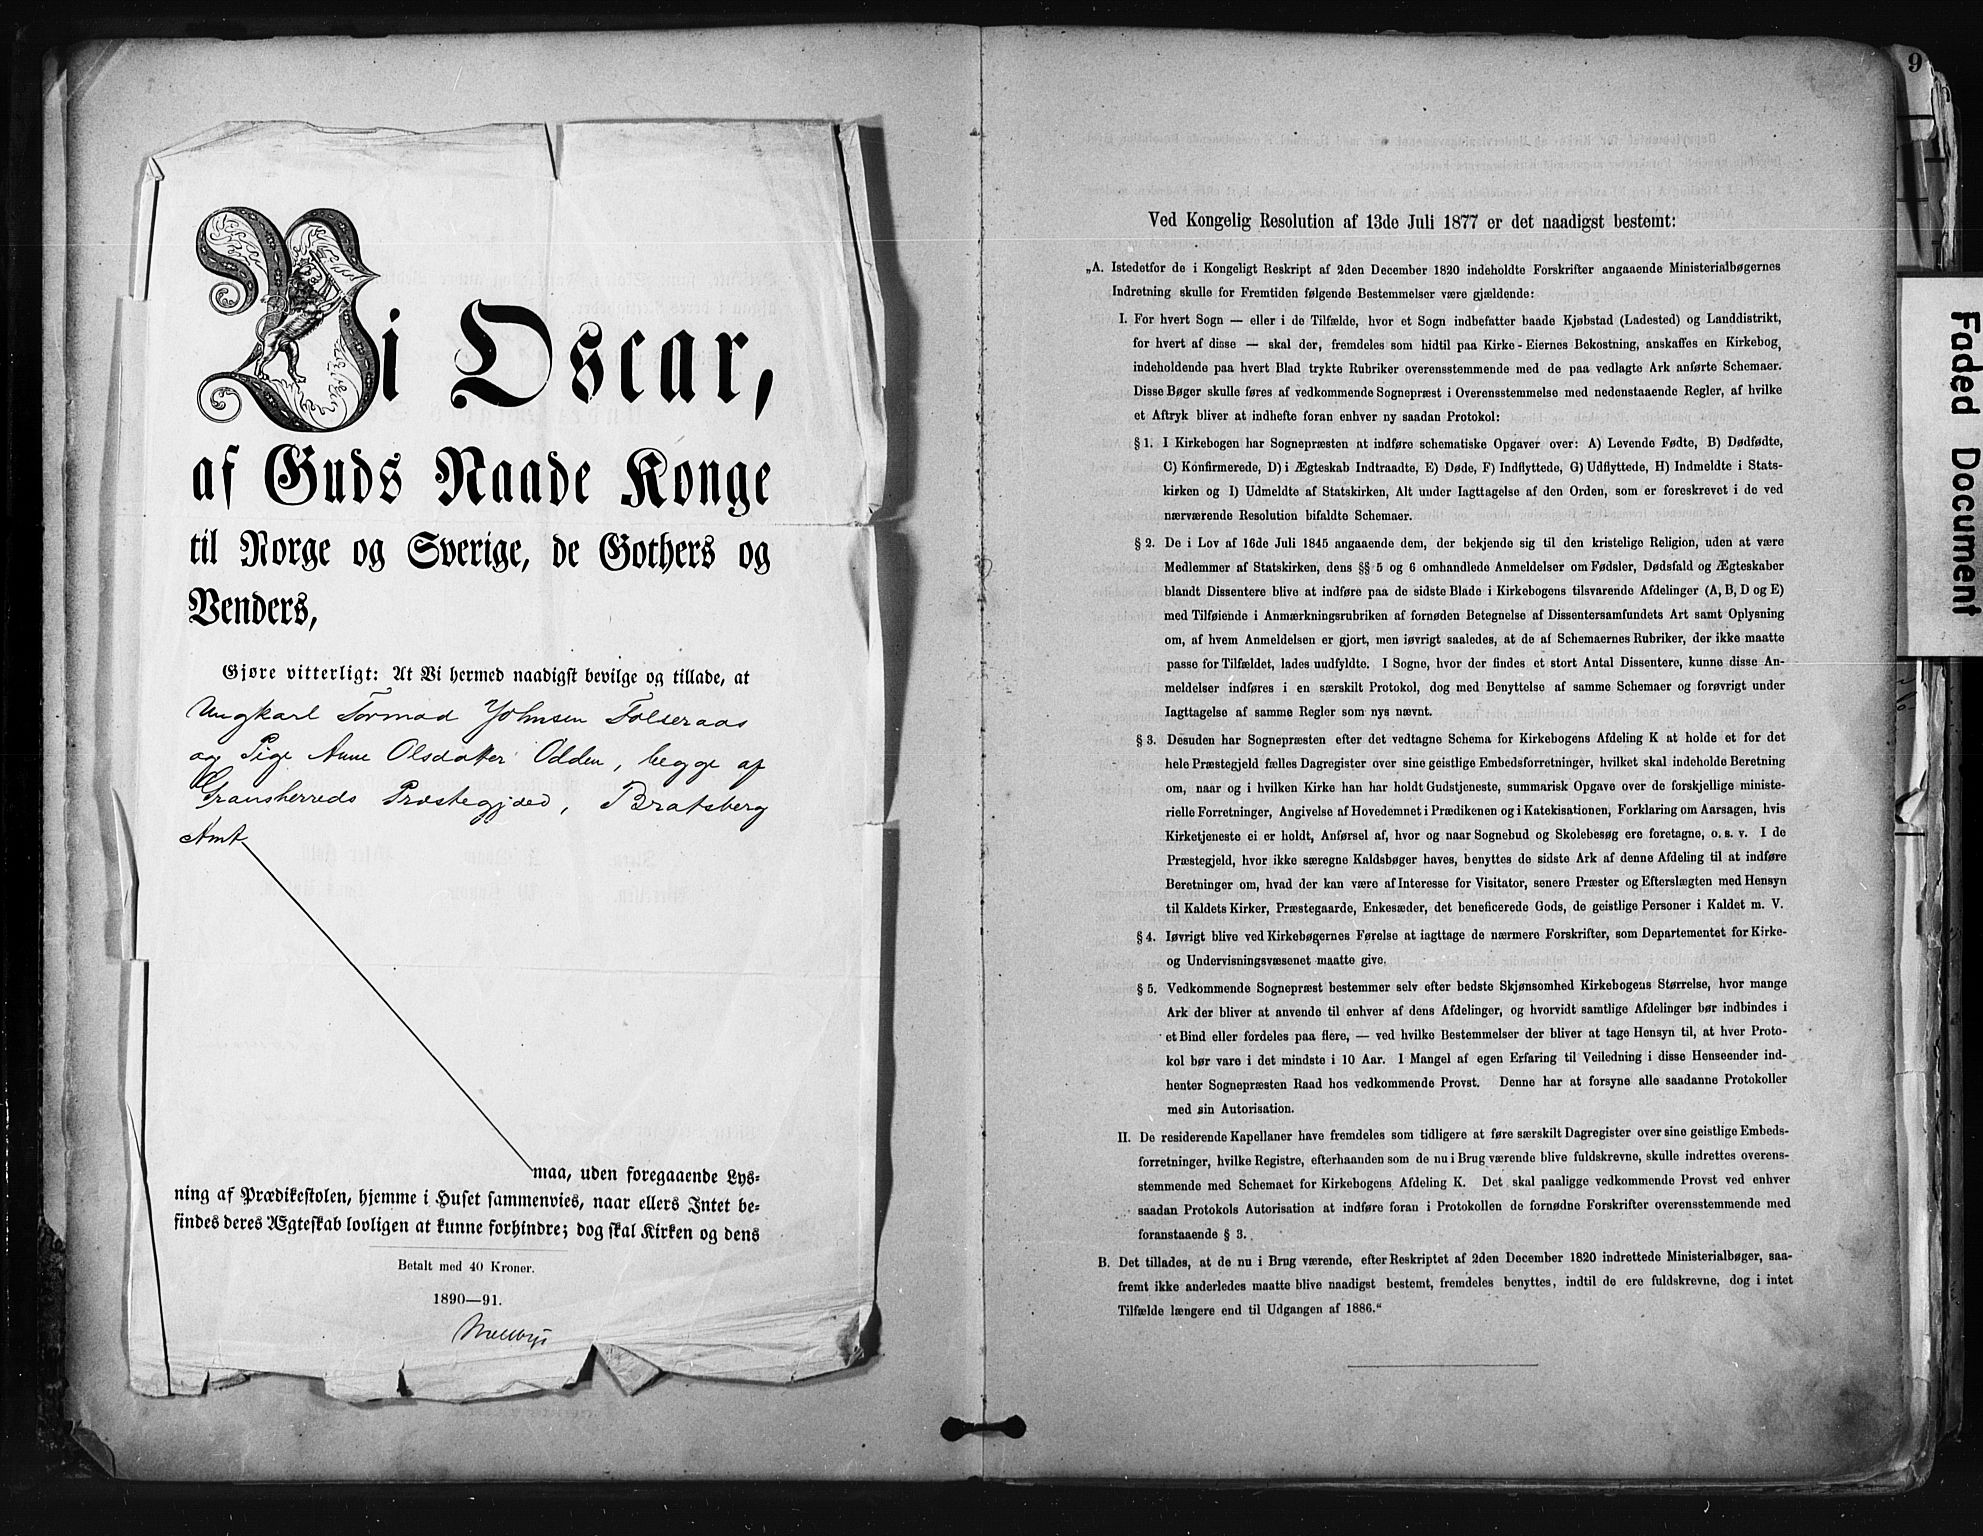 Vi Oscar,
af Guds Naade Konge
til Norge og Sverige, de Gothers og
Venders,
Gjøre vitterligt: At Vi hermed naadigst bevilge og tillade, at
Ungkarl Tormod Johnsen Folseraas
og Pige Anne Olsdatter Odden, begge af
Gransherreds Præstegjæld, Bratsberg
Amt
maa, uden foregaaende Lys-
ning af Prædikestolen, hjemme i Huset sammenvies, naar ellers Intet be-
findes deres Ægteskab lovligen at kunne forhindre; dog skal Kirken og dens
Betalt med 40 Kroner.
1890—91.
9
Faded Document
Ved Kongelig Resolution af 13de Juli 1877 er det naadigst bestemt:
„A. Istedetfor de i Kongeligt Reskript af 2den December 1820 indeholdte Forskrifter angaaende Ministerialbøgernes
Indretning skulle for Fremtiden følgende Bestemmelser være gjældende:
I. For hvert Sogn — eller i de Tilfælde, hvor et Sogn indbefatter baade Kjøbstad (Ladested) og Landdistrikt,
for hvert af disse — skal der, fremdeles som hidtil paa Kirke-Eiernes Bekostning, anskaffes en Kirkebog,
indeholdende paa hvert Blad trykte Rubriker overensstemmende med de paa vedlagte Ark anførte Schemaer.
Disse Bøger skulle føres af vedkommende Sognepræst i Overensstemmelse med nedenstaaende Regler, af hvilke
et Aftryk bliver at indhefte foran enhver ny saadan Protokol:
§ 1. I Kirkebogen har Sognepræsten at indføre schematiske Opgaver over: A) Levende Fødte, B) Dødfødte,
C) Konfirmerede, D) i Ægteskab Indtraadte, E) Døde, F) Indflyttede, G) Udflyttede, H) Indmeldte i Stats-
kirken og I) Udmeldte af Statskirken, Alt under Iagttagelse af den Orden, som er foreskrevet i de ved
nærværende Resolution bifaldte Schemaer.
§ 2. De i Lov af 16de Juli 1845 angaaende dem, der bekjende sig til den kristelige Religion, uden at være
Medlemmer af Statskirken, dens §§ 5 og 6 omhandlede Anmeldelser om Fødsler, Dødsfald og Ægteskaber
blandt Dissentere blive at indføre paa de sidste Blade i Kirkebogens tilsvarende Afdelinger (A, B, D og E)
med Tilføiende i Anmærkningsrubriken af fornøden Betegnelse af Dissentersamfundets Art samt Oplysning
om, af hvem Anmeldelsen er gjort, men iøvrigt saaledes, at de af Schemaernes Rubriker, der ikke maatte
passe for Tilfældet, lades uudfyldte. I Sogne, hvor der findes et stort Antal Dissentere, kunne disse An-
meldelser indføres i en særskilt Protokol, dog med Benyttelse af samme Schemaer og forøvrigt under
Iagttagelse af samme Regler som nys nævnt.
§ 3. Desuden har Sognepræsten efter det vedtagne Schema for Kirkebogens Afdeling K at holde et for det
hele Præstegjeld fælles Dagregister over sine geistlige Embedsforretninger, hvilket skal indeholde Beretning
om, naar og i hvilken Kirke han har holdt Gudstjeneste, summarisk Opgave over de forskjellige ministe-
rielle Forretninger, Angivelse af Hovedemnet i Prædikenen og i Katekisationen, Forklaring om Aarsagen, hvis
Kirketjeneste ei er holdt, Anførsel af, hvor og naar Sognebud og Skolebesøg ere foretagne, o. s. v. I de
Præstegjeld, hvor ikke særegne Kaldsbøger haves, benyttes de sidste Ark af denne Afdeling til at indføre
Beretninger om, hvad der kan være af Interesse for Visitator, senere Præster og Efterslægten med Hensyn
til Kaldets Kirker, Præstegaarde, Enkesæder, det beneficerede Gods, de geistlige Personer i Kaldet m. V.
§ 4. Iøvrigt blive ved Kirkebøgernes Førelse at iagttage de nærmere Forskrifter, som Departementet for Kirke-
og Undervisningsvæsenet maatte give.
§ 5. Vedkommende Sognepræst bestemmer selv efter bedste Skjønsomhed Kirkebogens Størrelse, hvor mange
Ark der bliver at anvende til enhver af dens Afdelinger, og hvorvidt samtlige Afdelinger bør indbindes i
et Bind eller fordeles paa flere, — ved hvilke Bestemmelser der bliver at tage Hensyn til, at hver Proto-
kol bør vare i det mindste i 10 Aar. I Mangel af egen Erfaring til Veiledning i disse Henseender ind-
henter Sognepræsten Raad hos vedkommende Provst. Denne har at forsyne alle saadanne Protokoller
med sin Autorisation.
II. De residerende Kapellaner have fremdeles som tidligere at føre særskilt Dagregister over sine geistlige Embeds-
forretninger, hvilke Registre, efterhaanden som de nu i Brug værende blive fuldskrevne, skulle indrettes overens-
stemmende med Schemaet for Kirkebogens Afdeling K. Det skal paaligge vedkommende Provst ved enhver
saadan Protokols Autorisation at indføre foran i Protokollen de fornødne Forskrifter overensstemmende med
foranstaaende § 3.
B. Det tillades, at de nu i Brug værende, efter Reskriptet af 2den December 1820 indrettede Ministerialbøger, saa-
fremt ikke anderledes maatte blive naadigst bestemt, fremdeles benyttes, indtil de ere fuldskrevne, dog i intet
Tilfælde længere end til Udgangen af 1886.“